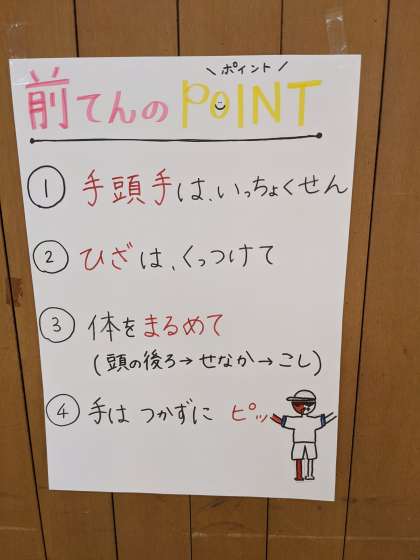 ＼ポイント／
前てんのPOINT
① 手頭手は、いっちょくせん
② ひざは、くっつけて
③ 体をまるめて
(頭の後ろ→せなか→こし)
④ 手はつかずに ピッ